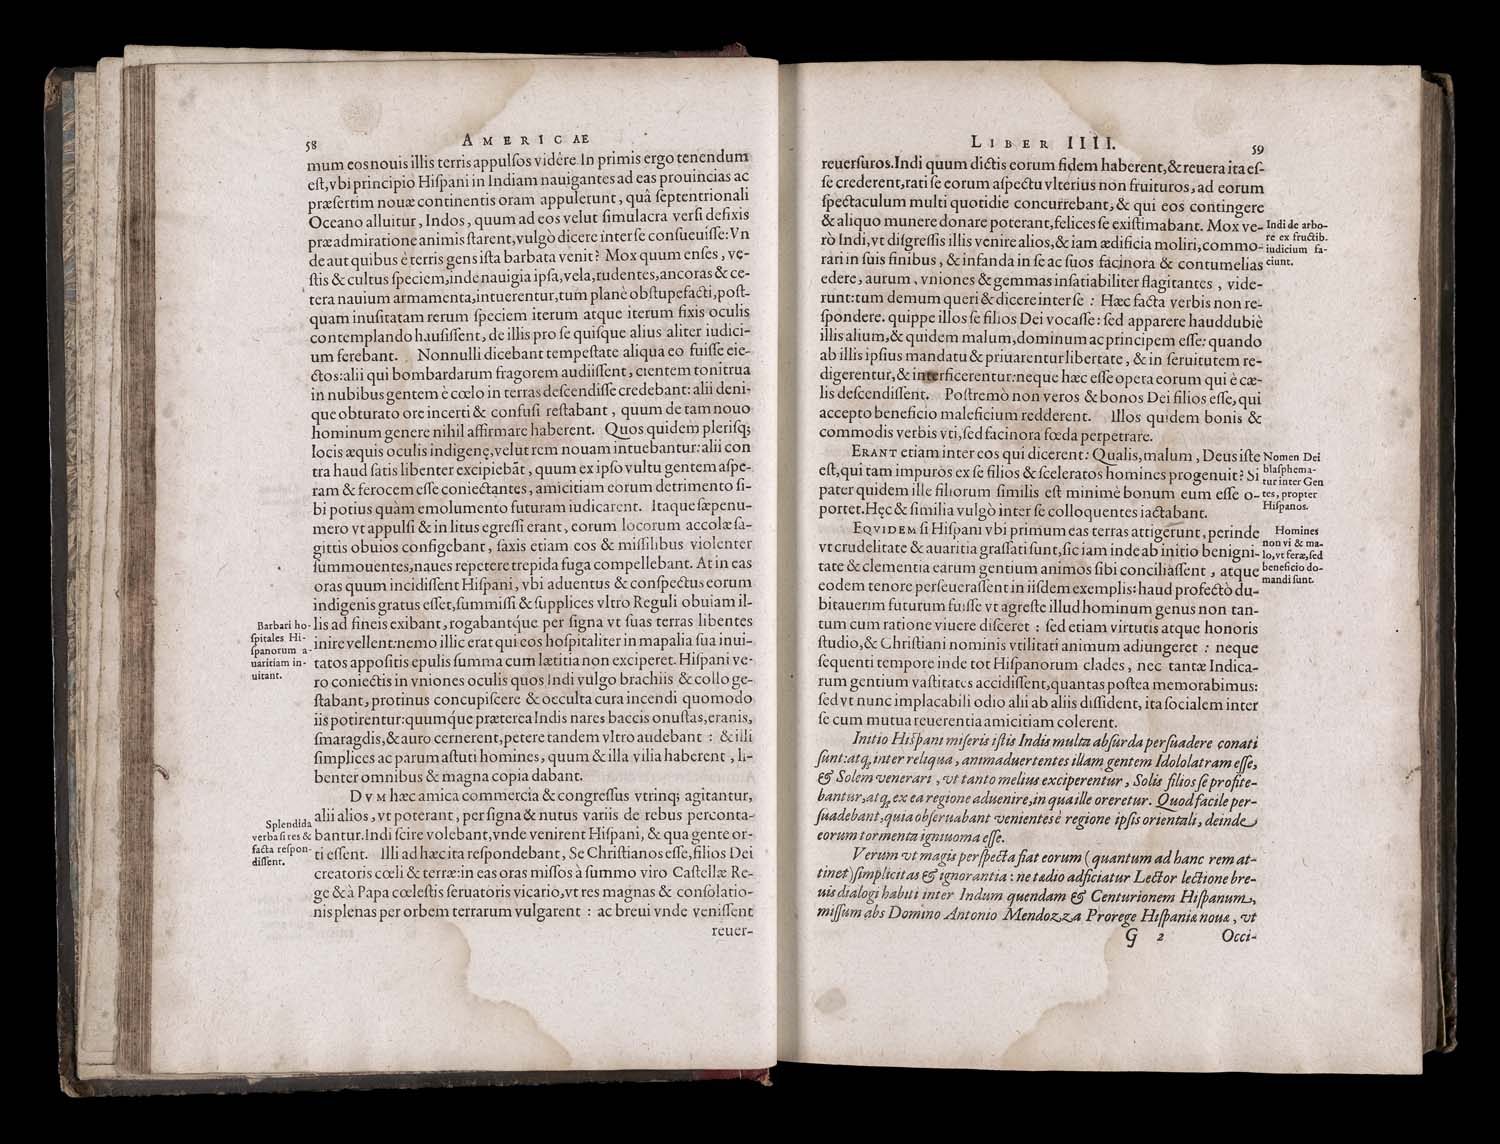 58
AMERICAE
mum eos nouis illis terris appulſos vidêre. In primis ergo tenendum
eſt, vbi principio Hiſpani in Indiam nauigantes ad eas prouincias ac
præſertim nouæ continentis oram appulerunt, quâ ſeptentrionali
Oceano alluitur, Indos, quum ad eos velut ſimulacra verſi defixis
præ admiratione animis ſtarent, vulgò dicere inter ſe conſueuiſſe: Vn
de aut quibus è terris gens iſta barbata venit? Mox quum enſes, vę-
ſtis & cultus ſpeciem, inde nauigia ipſa, vela, rudentes, ancoras & ce-
tera nauium armamenta, intuerentur, tum planè obſtupefacti, poſt-
quam inuſitatam rerum ſpeciem iterum atque iterum fixis oculis
contemplando hauſiſſent, de illis pro ſe quiſque alius aliter iudici-
um ferebant. Nonnulli dicebant tempeſtate aliqua eo fuiſſe eie-
ctos: alii qui bombardarum fragorem audiiſſent, cientem tonitrua
in nubibus gentem è cœlo in terras deſcendiſſe credebant: alii deni-
que obturato ore incerti & confuſi reſtabant, quum de tam nouo
hominum genere nihil affirmare haberent. Quos quidem pleriſq;
locis æquis oculis indigenę, velut rem nouam intuebantur: alii con
tra haud ſatis libenter excipiebãt, quum ex ipſo vultu gentem aſpe-
ram & ferocem eſſe coniectantes, amicitiam eorum detrimento ſi-
bi potius quàm emolumento futuram iudicarent. Itaque ſæpenu-
mero vt appulſi & in litus egreſſi erant, eorum locorum accolæ ſa-
gittis obuios configebant, ſaxis etiam eos & miſſilibus violenter
ſummouentes, naues repetere trepida fuga compellebant. At in eas
oras quum incidiſſent Hiſpani, vbi aduentus & conſpectus eorum
indigenis gratus eſſet, ſummiſſi & ſupplices vltro Reguli obuiam il-
lis ad fineis exibant, rogabantq́ue per ſigna vt ſuas terras libentes
inire vellent: nemo illic erat qui eos hoſpitaliter in mapalia ſua inui-
tatos appoſitis epulis ſumma cum lætitia non exciperet. Hiſpani ve-
ro coniectis in vniones oculis quos Indi vulgo brachiis & collo ge-
ſtabant, protinus concupiſcere & occulta cura incendi quomodo
iis potirentur: quumq́ue præterea Indis nares baccis onuſtas, eranis,
ſmaragdis, & auro cernerent, petere tandem vltro audebant : & illi
ſimplices ac parum aſtuti homines, quum & illa vilia haberent, li-
benter omnibus & magna copia dabant.
DVM hæc amica commercia & congreſſus vtrinq; agitantur,
alii alios, vt poterant, per ſigna & nutus variis de rebus perconta-
bantur. Indi ſcire volebant, vnde venirent Hiſpani, & qua gente or-
ti eſſent. Illi ad hæc ita reſpondebant, Se Chriſtianos eſſe, filios Dei
creatoris cœli & terræ: in eas oras miſſos à ſummo viro Caſtellæ Re-
ge & à Papa cœleſtis ſeruatoris vicario, vt res magnas & conſolatio-
nis plenas per orbem terrarum vulgarent : ac breui vnde veniſſent
reuer-
Barbari ho-
ſpitales Hi-
ſpanorum a-
uaritiam in-
uitant.
Splendida
verba ſi res &
facta reſpon-
diſſent.
LIBER IIII.
59
reuerſuros. Indi quùm dictis eorum fidem haberent, & reuera ita eſ-
ſe crederent, rati ſe eorum aſpectu vlterius non fruituros, ad eorum
ſpectaculum multi quotidie concurrebant, & qui eos contingere
& aliquo munere donare poterant, felices ſe exiſtimabant. Mox ve-
rò Indi, vt diſgreſſis illis venire alios, & iam ædificia moliri, commo-
rari in ſuis finibus, & infanda in ſe ac ſuos facinora & contumelias
edere, aurum, vniones & gemmas inſatiabiliter flagitantes, vide-
runt: tum demum queri & dicere inter ſe : Hæc facta verbis non re-
ſpondere. quippe illos ſe filios Dei vocaſſe: ſed apparere hauddubiè
illis alium, & quidem malum, dominum ac principem eſſe: quando
ab illis ipſius mandatu & priuarentur libertate, & in ſeruitutem re-
digerentur, & interficerentur: neque hæc eſſe opera eorum qui è cæ-
lis deſcendiſſent. Poſtremò non veros & bonos Dei filios eſſe, qui
accepto beneficio maleficium redderent. Illos quidem bonis &
commodis verbis vti, ſed facinora fœda perpetrare.
ERANT etiam inter eos qui dicerent: Qualis, malum, Deus iſte
eſt, qui tam impuros ex ſe filios & ſceleratos homines progenuit? Si
pater quidem ille filiorum ſimilis eſt minimè bonum eum eſſe o-
portet. Hęc & ſimilia vulgò inter ſe colloquentes iactabant.
EQVIDEM ſi Hiſpani vbi primum eas terras attigerunt, perinde
vt crudelitate & auaritia graſſati ſunt, ſic iam inde ab initio benigni-
tate & clementia earum gentium animos ſibi conciliâſſent, atque
eodem tenore perſeueraſſent in iiſdem exemplis: haud profectò du-
bitauerim futurum fuiſſe vt agreſte illud hominum genus non tan-
tum cum ratione viuere diſceret : ſed etiam virtutis atque honoris
ſtudio, & Chriſtiani nominis vtilitati animum adiungeret : neque
ſequenti tempore inde tot Hiſpanorum clades, nec tantæ Indica-
rum gentium vaſtitates accidiſſent, quantas poſtea memorabimus:
ſed vt nunc implacabili odio alii ab aliis diſſident, ita ſocialem inter
ſe cum mutua reuerentia amicitiam colerent.
Initio Hiſpani miſeris iſtis Indis multa abſurda perſuadere conati
ſunt: atq́; inter reliqua, animaduertentes illam gentem Idololatram eſſe,
& Solem venerari, vt tanto melius exciperentur, Solis filios ſe profite-
bantur, atq́; ex ea regione aduenire, in qua ille oreretur. Quod facile per-
ſuadebant, quia obſeruabant venientes è regione ipſis orientali, deinde
eorum tormenta igniuoma eſſe.
Verum vt magis perſpecta fiat eorum (quantum ad hanc rem at-
tinet) ſimplicitas & ignorantia : ne tædio adficiatur Lector lectione bre-
uis dialogi habiti inter Indum quendam & Centurionem Hiſpanum,
miſſum abs Domino Antonio Mendozza Prorege Hiſpaniæ nouæ, vt
G 2 Occi-
Indi de arbo-
re ex fructib.
iudicium fa-
ciunt.
Nomen Dei
blaſphema-
tur inter Gen
tes, propter
Hiſpanos.
Homines
non vi & ma-
lo, vt feræ, ſed
beneficio do-
mandi ſunt.